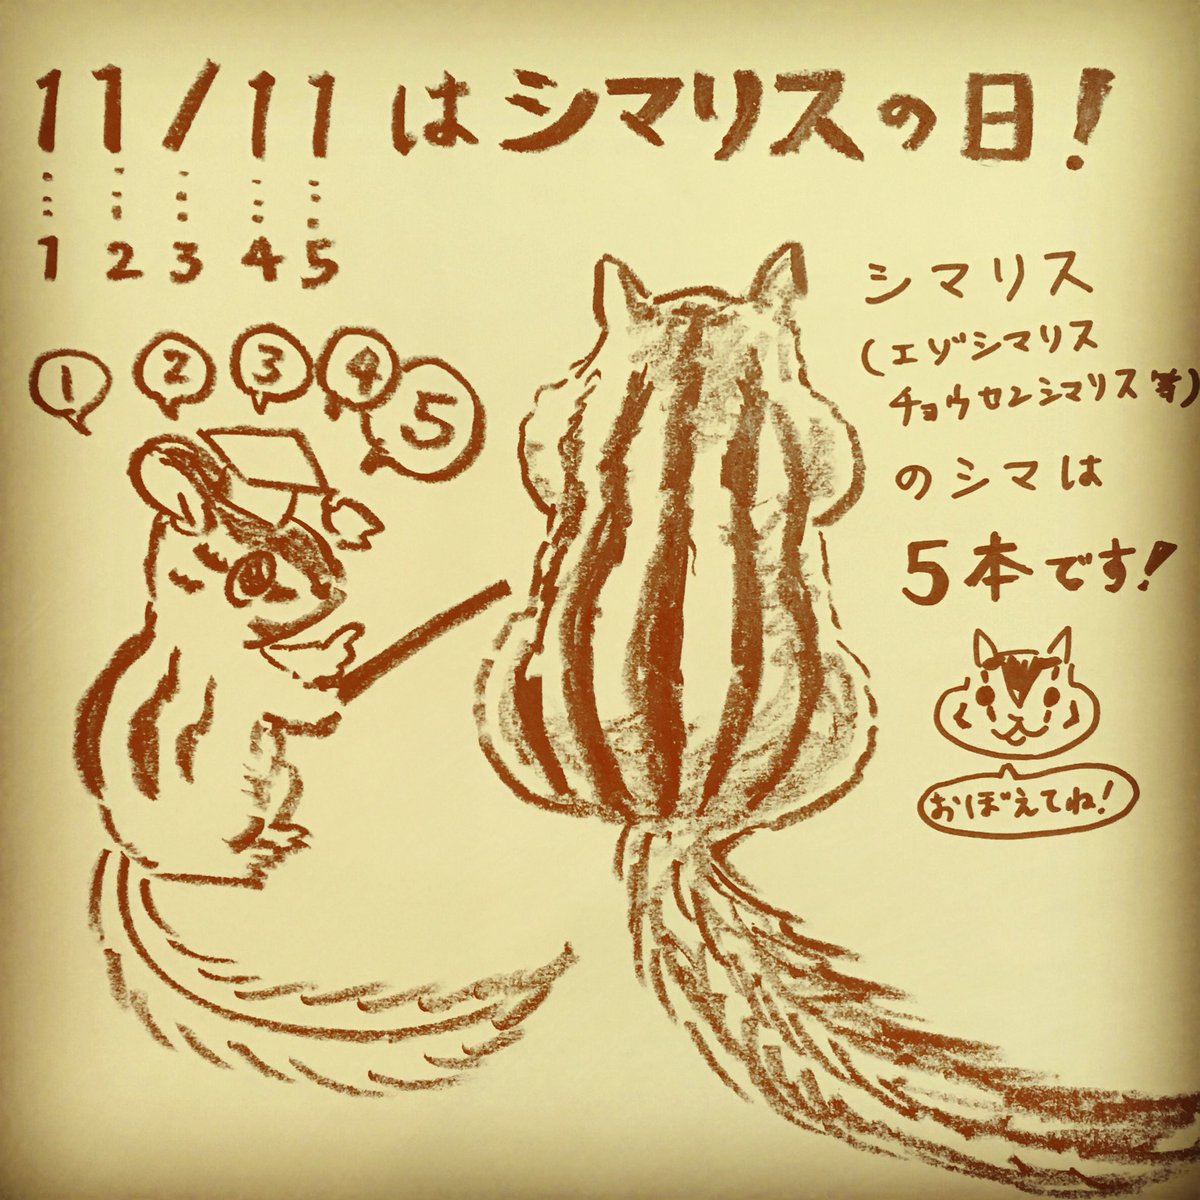 11/11はシマリスの日!
1 2 3 4 5
1 2 3 4 5
シマリス
(エゾシマリス
チョウセンシマリス等)
のシマは
5本です!
おぼえてね!